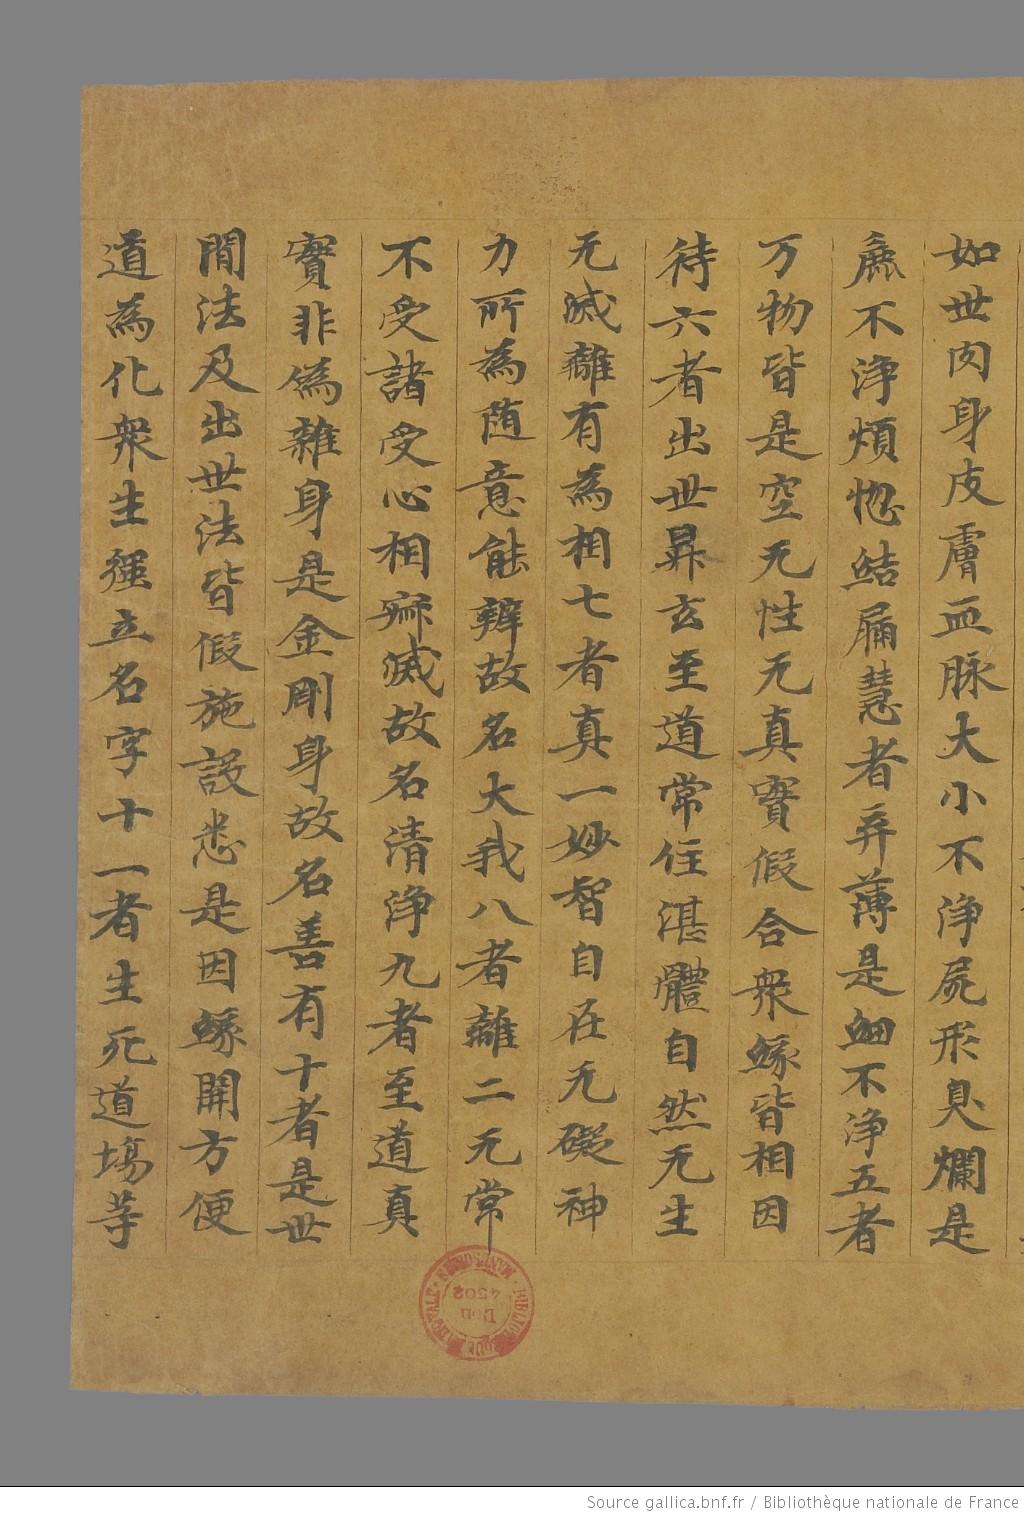 如世肉身皮膚血脉大小不淨屍形臭爛是
麁不淨煩惚結漏慧者弃薄是細不淨五者
万物皆是空无性无真實假合衆緣皆相因
待六者出世昇玄至道常住湛體自然无生
无滅離有為相七者真一妙智自在无礙神
力所為随意能辯故名大我八者離二无常
不受諸受心相寂滅故名清淨九者至道真
實非偽雜身是金剛身故名善有十者是世
間法及出世法皆假施設悉是因緣開方便
道為化衆生强立名字十一者生死道塲等
MANUSCRITS
BIBLIOTHEQUE NATIONALE
Don
4502
Source gallica.bnf.fr / Bibliothèque nationale de France